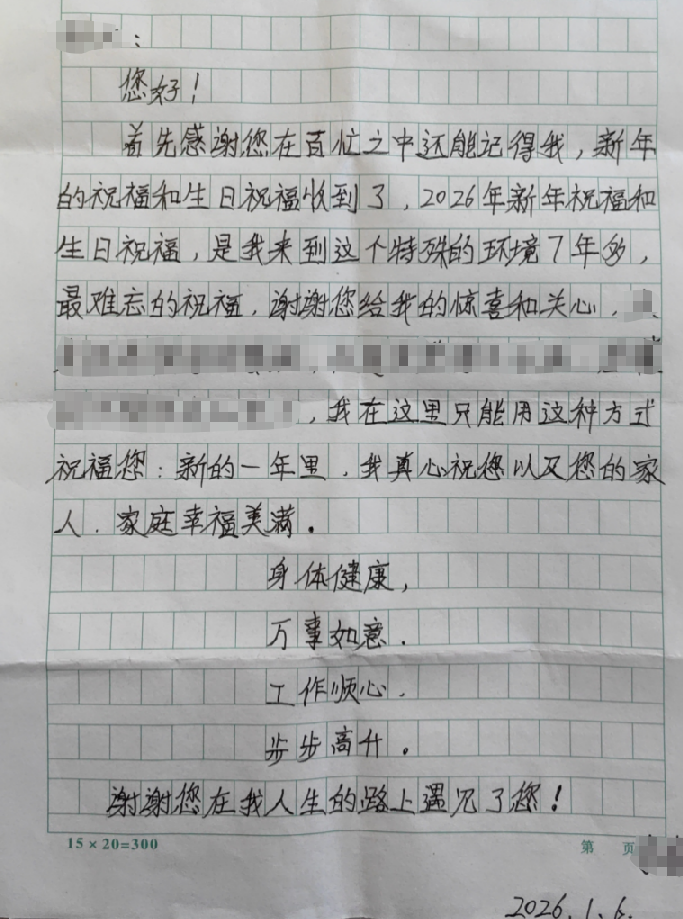 ：
您好！
首先感谢您在百忙之中还能记得我，新年
的祝福和生日祝福收到了，2026年新年祝福和
生日祝福，是我来到这个特殊的环境7年多，
最难忘的祝福，谢谢您给我的惊喜和关心，
，我在这里只能用这种方式
祝福您：新的一年里，我真心祝您以及您的家
人．家庭幸福美满。
身体健康，
万事如意．
工作顺心．
步步高升。
谢谢您在我人生的路上遇见了您！
15×20=300 第 页
2026.1.6.